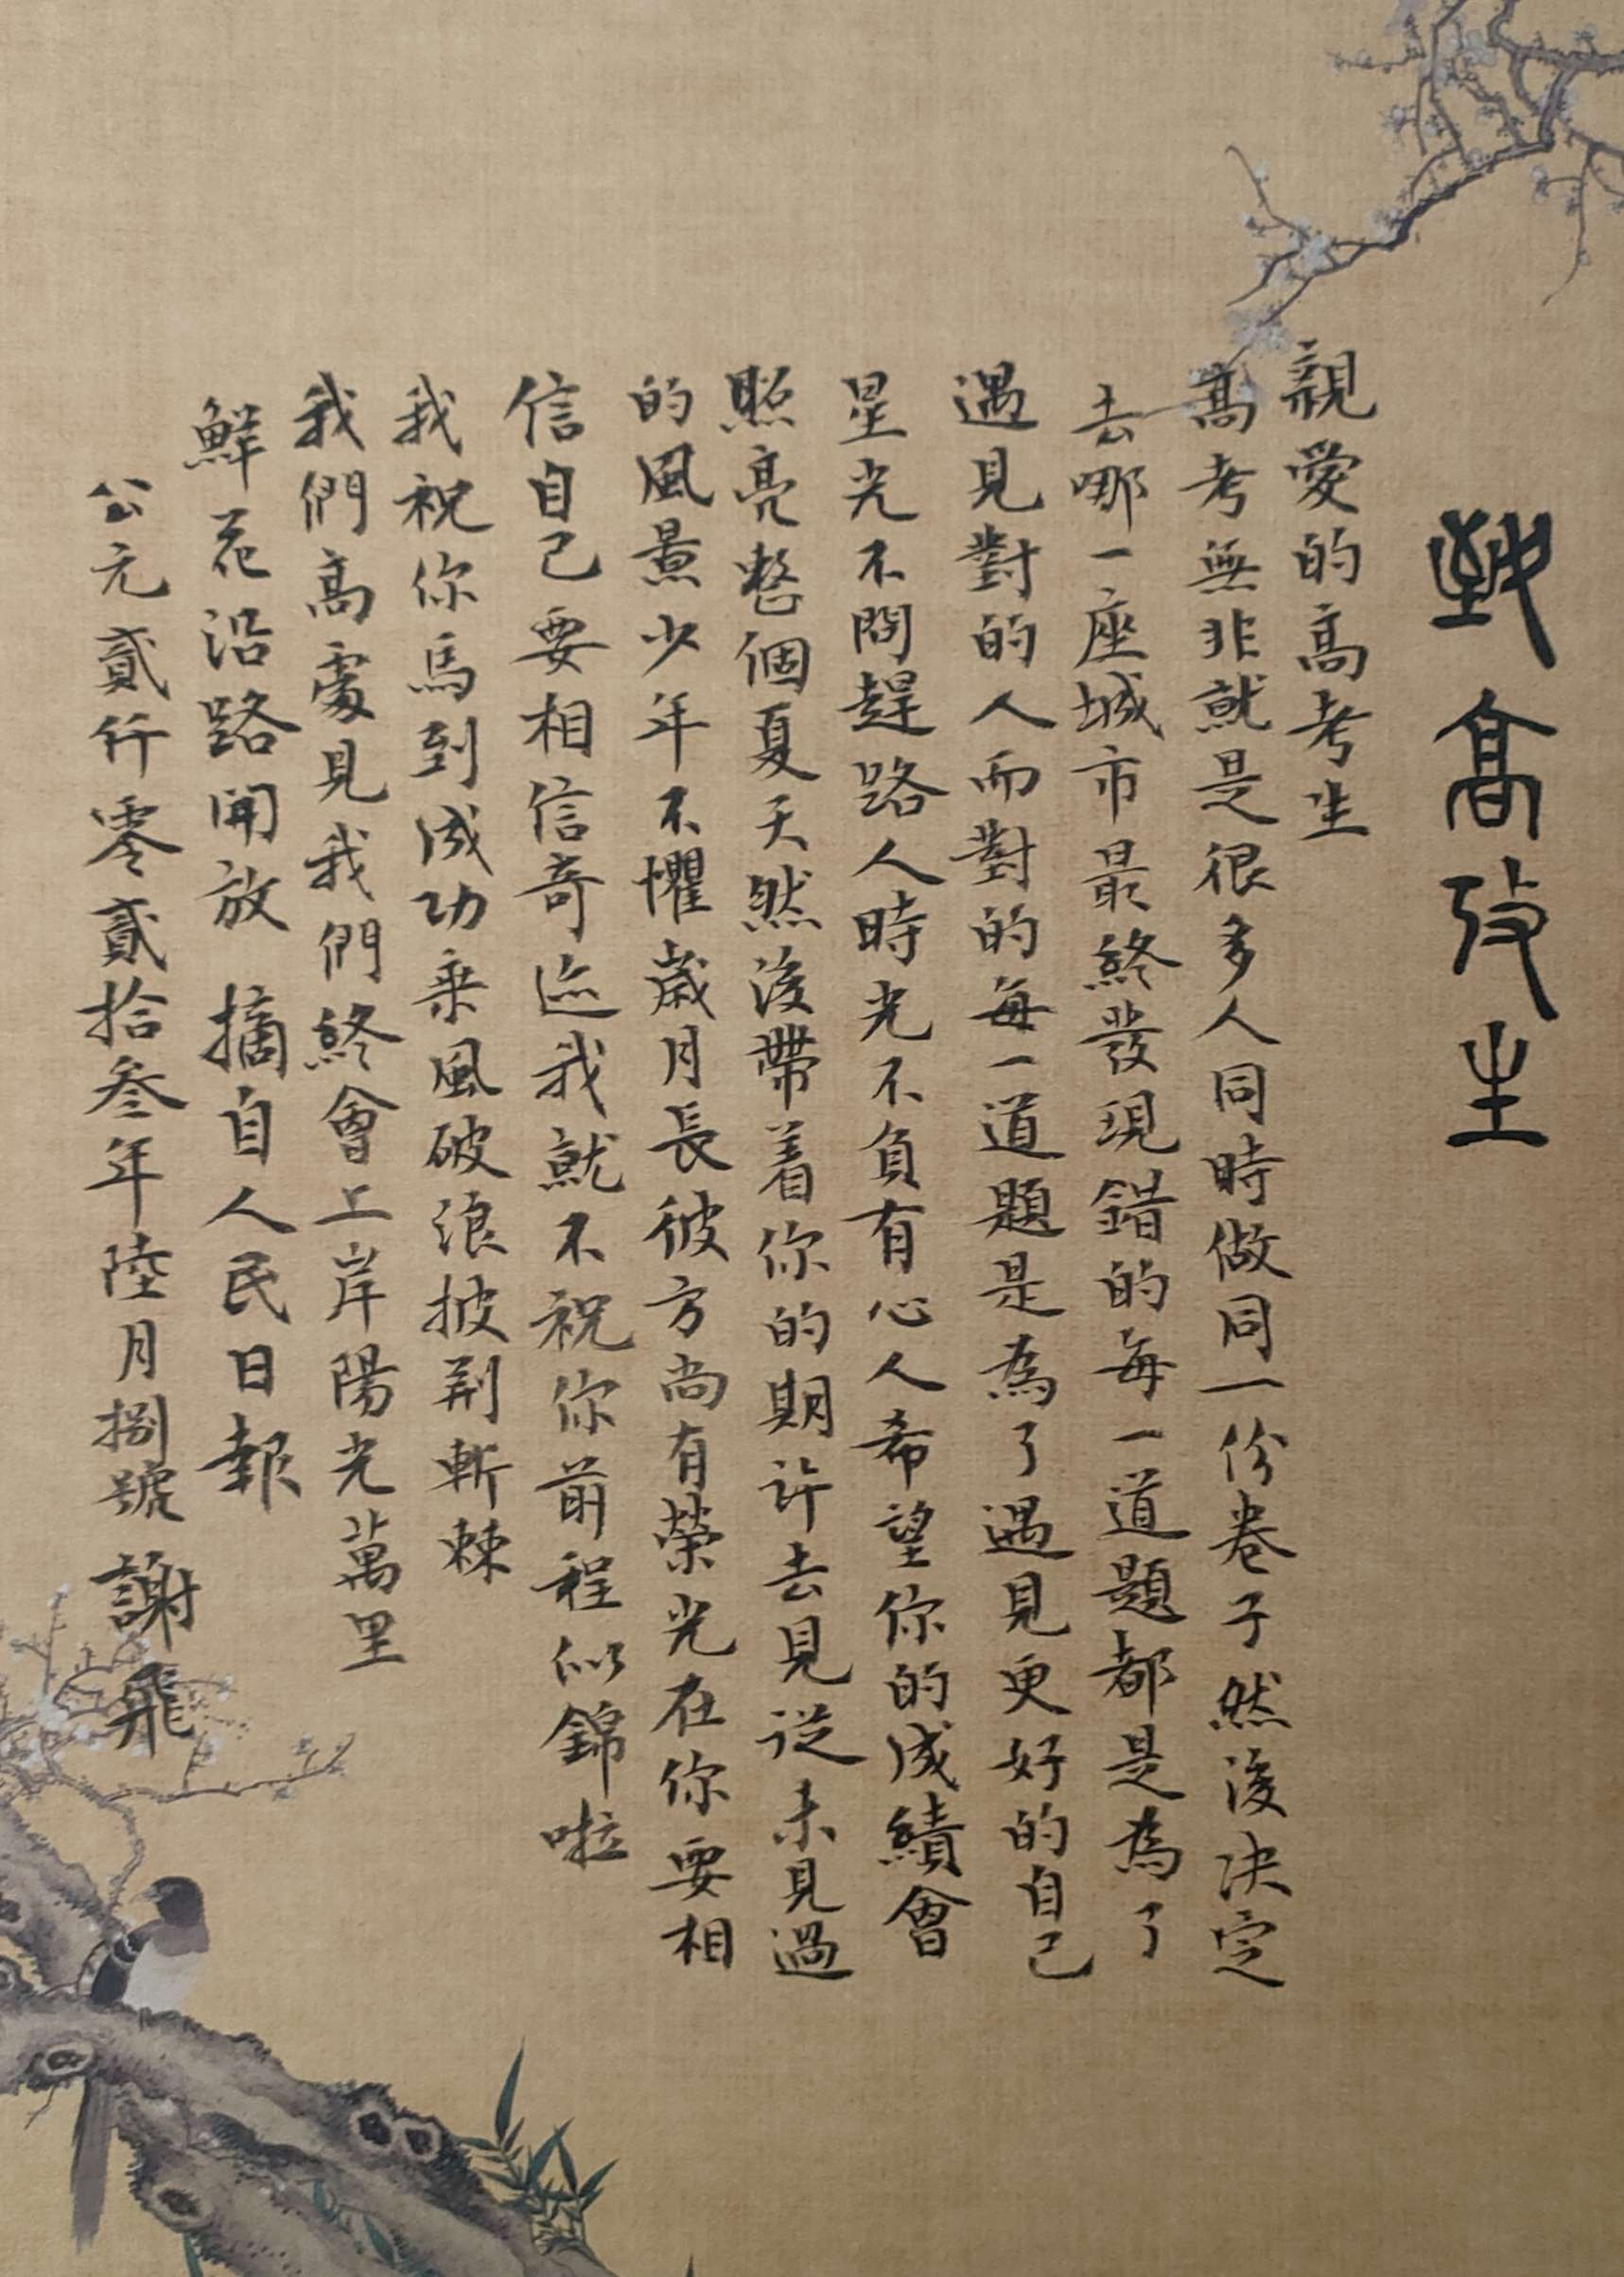 致高攷生
親愛的高考生
高考無非就是很多人同時做同一份卷子然後决定
去哪一座城市最終發現錯的每一道題都是為了
遇見對的人而對的每一道題是為了遇見更好的自己
星光不問趕路人時光不負有心人希望你的成績會
照亮整個夏天然後帶着你的期許去見從未見過
的風景少年不懼歲月長彼方尚有榮光在你要相
信自己要相信奇迹我就不祝你前程似錦啦
我祝你馬到成功乘風破浪披荆斬棘
我們高處見我們終會上岸陽光萬里
鮮花沿路開放 摘自人民日報
公元貳仟零貳拾叁年陸月捌號 謝飛